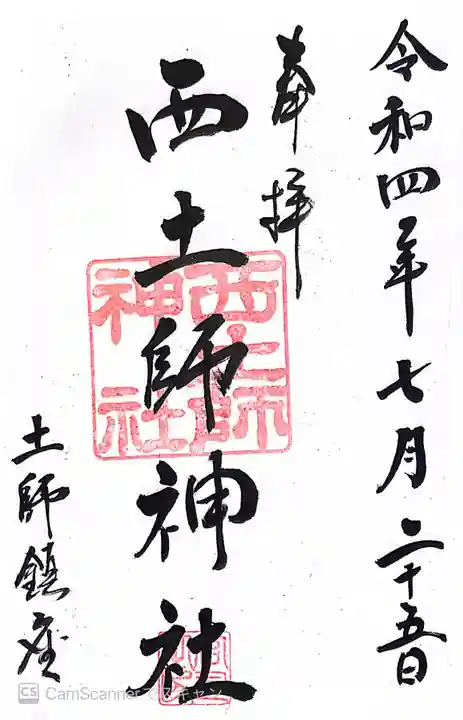 令和四年七月二十五日
奉拝
西土師神社
西土師神社
土師鎮座
CS CamScannerでスキャン